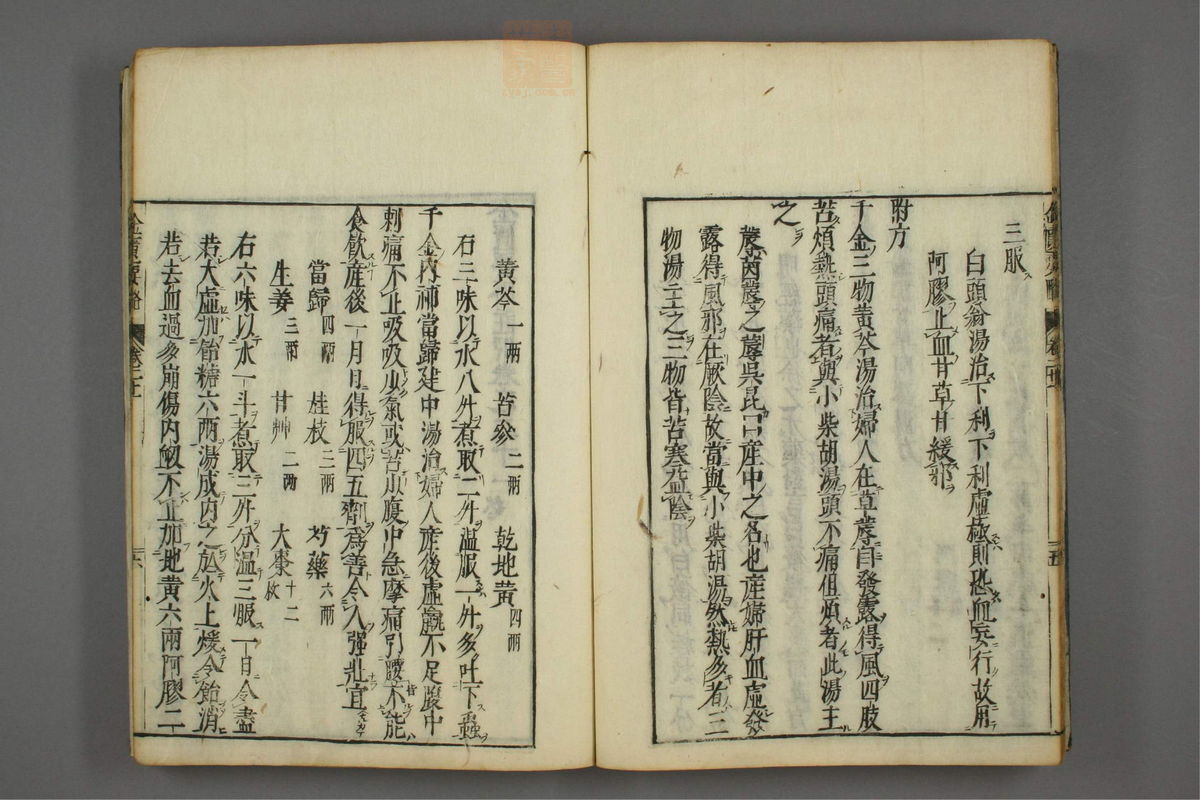 三服
白頭翁湯治下利下利虛極則恐血妄行故用
阿膠止血甘草甘緩邪
附方
千金三物黃芩湯治婦人在草蓐自發露得風四肢
苦煩熱頭痛者與小柴胡湯頭不痛但煩者此湯主
之
蓐茵蓐之蓐吳昆曰産中之名也産婦肝血虛發
露得風邪在厥陰故當與小柴胡湯然熱多者三
物湯主之三物皆苦寒益陰
黃芩一兩 苦參二兩 乾地黃四兩
右三味以水八升煮取二升溫服一升多吐下蟲
千金內補當歸建中湯治婦人産後虛羸不足腹中
刺痛不止吸吸少氣或苦少腹中急摩痛引腰不能
食飲産後一月日得服四五劑爲善令人强壯宜
當歸四兩 桂枝三兩 芍藥六兩
生姜三兩 甘艸二兩 大棗十二枚
右六味以水一斗煮取三升分溫三服一日令盡
若大虛加飴糖六兩湯成內之於火上煖令飴消
若去血過多崩傷內衂不止加地黃六兩阿膠二